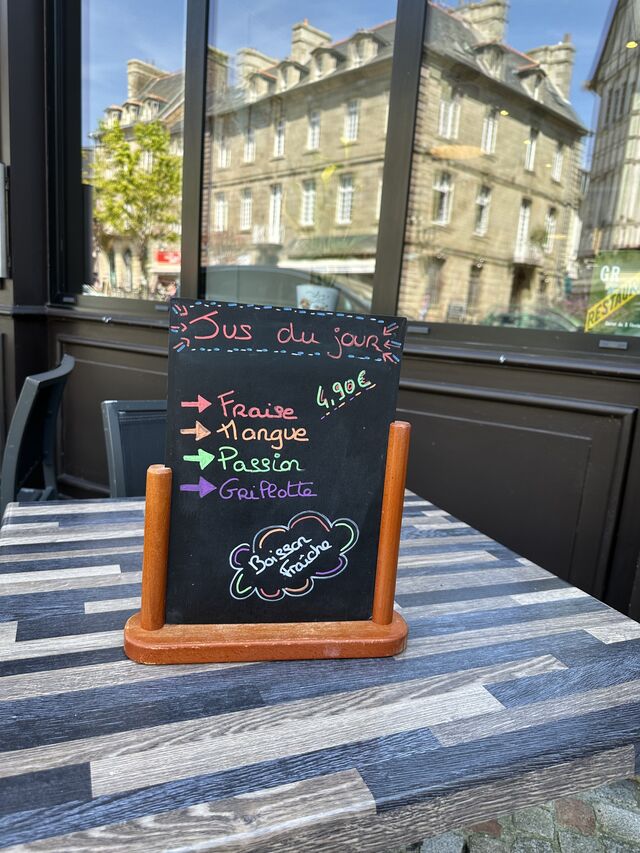 Jus du jour
4,90€
Fraise
Mangue
Passion
Griotte
Boisson
Fraîche
GR
RESTAU